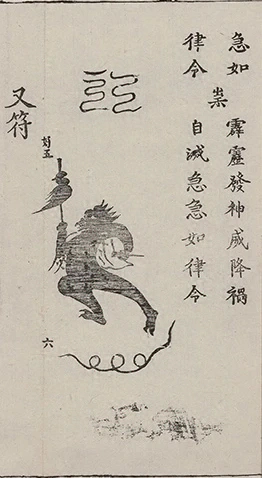 急如
律令
霹靂發神威降禍
祟
自滅急急如律令
又符
六